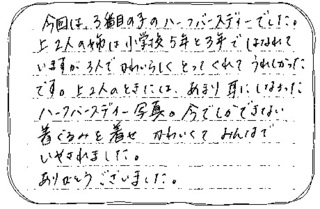 今回は、3番目の子のハーフバースディーでした。
上2人の姉は小学校5年と3年ではなれて
いますが3人でかわいらしくとってくれてうれしかった
です。上2人のときには、あまり耳にしなかった
ハーフバースディー写真。今でしかできない
着ぐるみを着せ かわいくて みんなで
いやされました。
ありがとうございました。